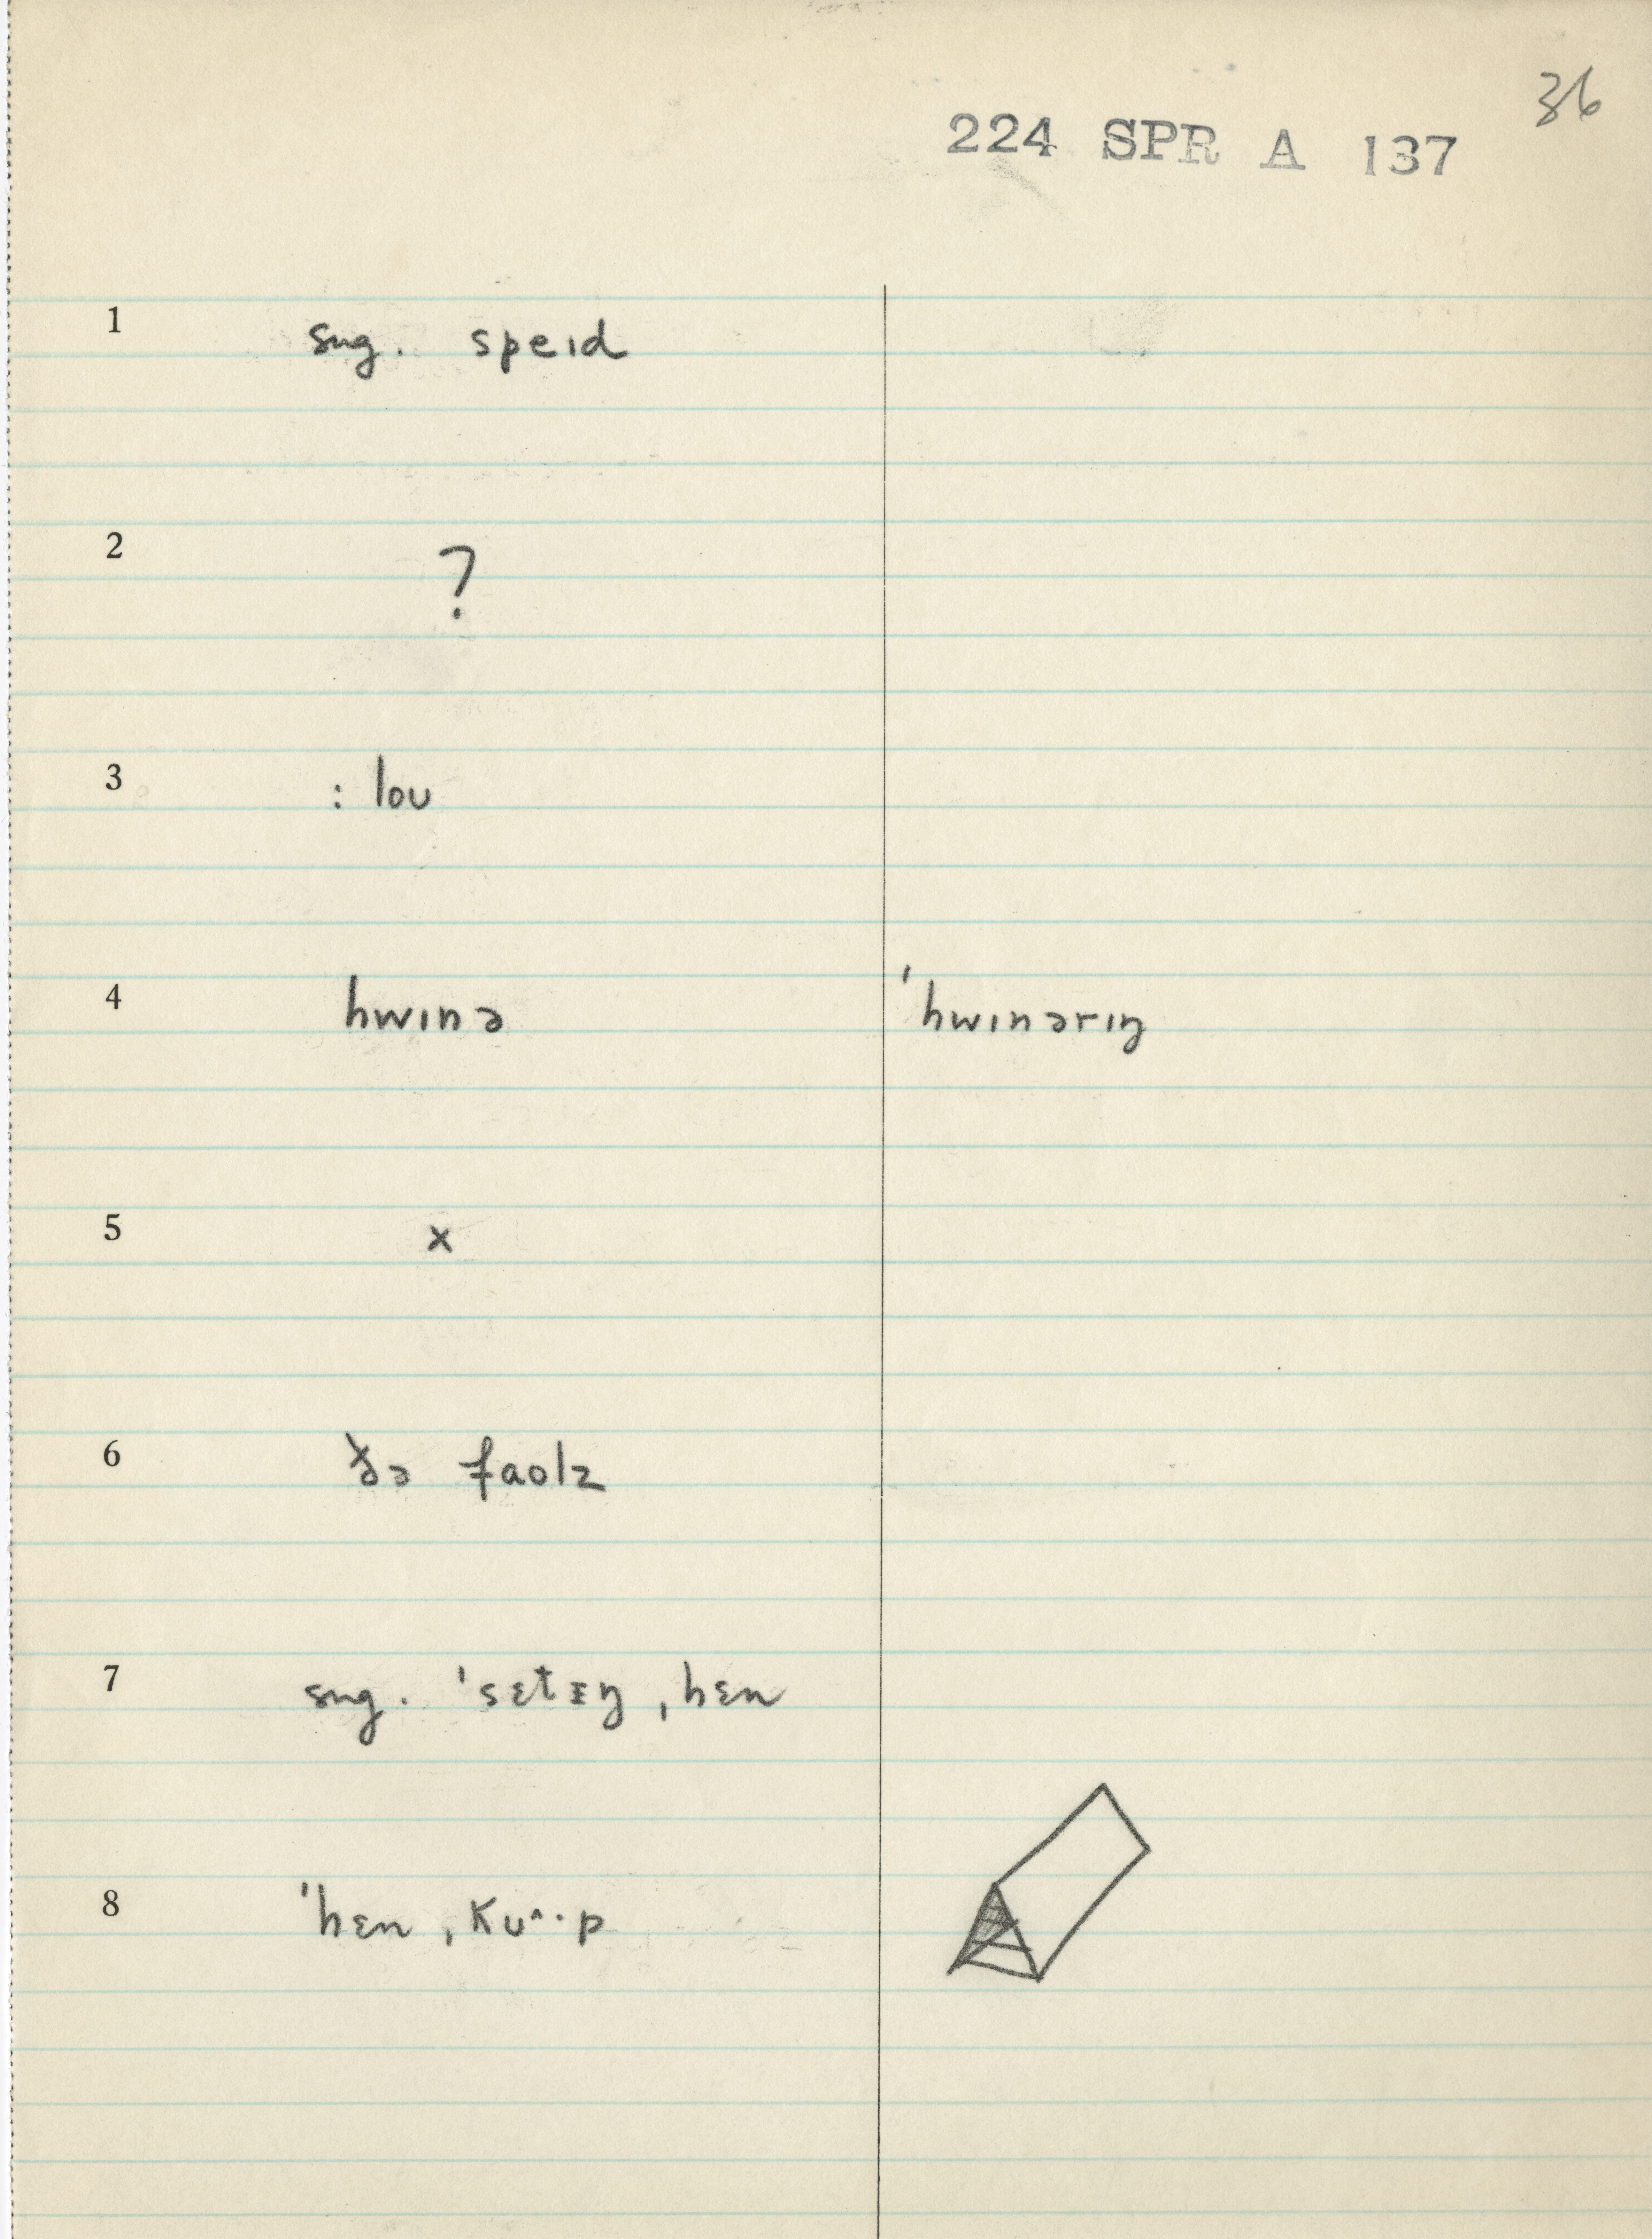 36
224 SPR A 137
1 sug. speɪd
2 ?
3 : loʊ
4 hwɪnə ˈhwɪnərɪŋ
5 x
6 ðə faolz
7 sug. ˈsɛtɪŋ ˌhɛn
8 ˈhɛn ˌkʊ^··p